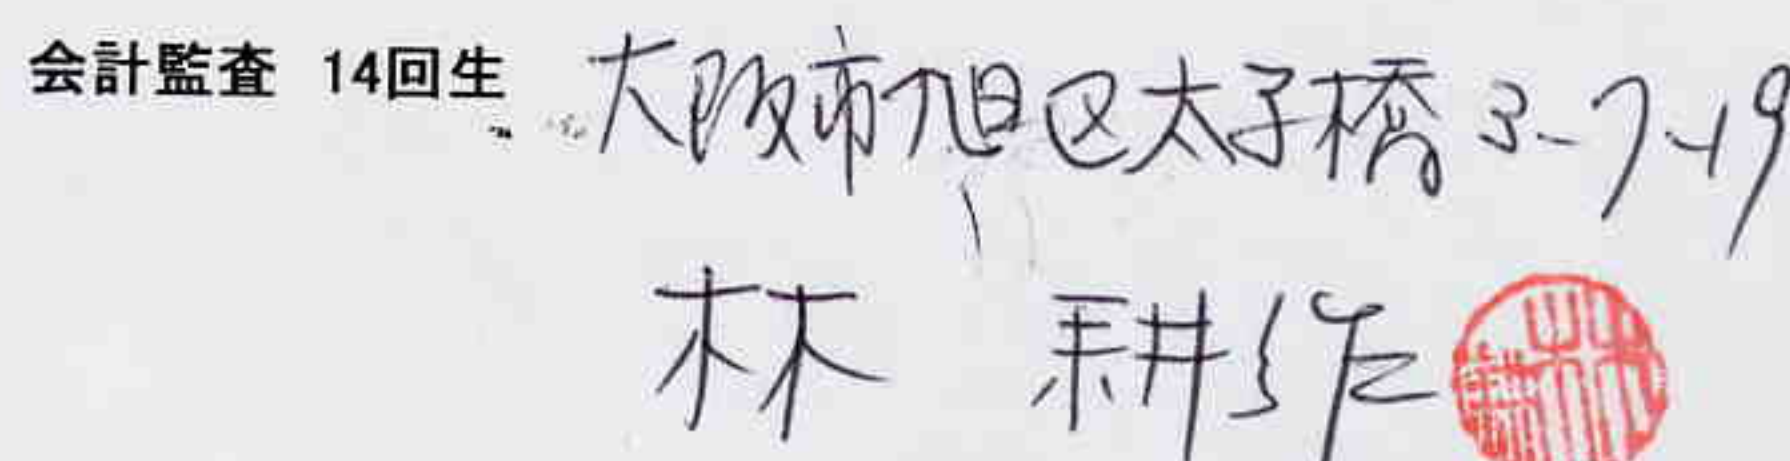 会計監査 14回生 大阪市旭区太子橋3-7-19
林 耕作
林